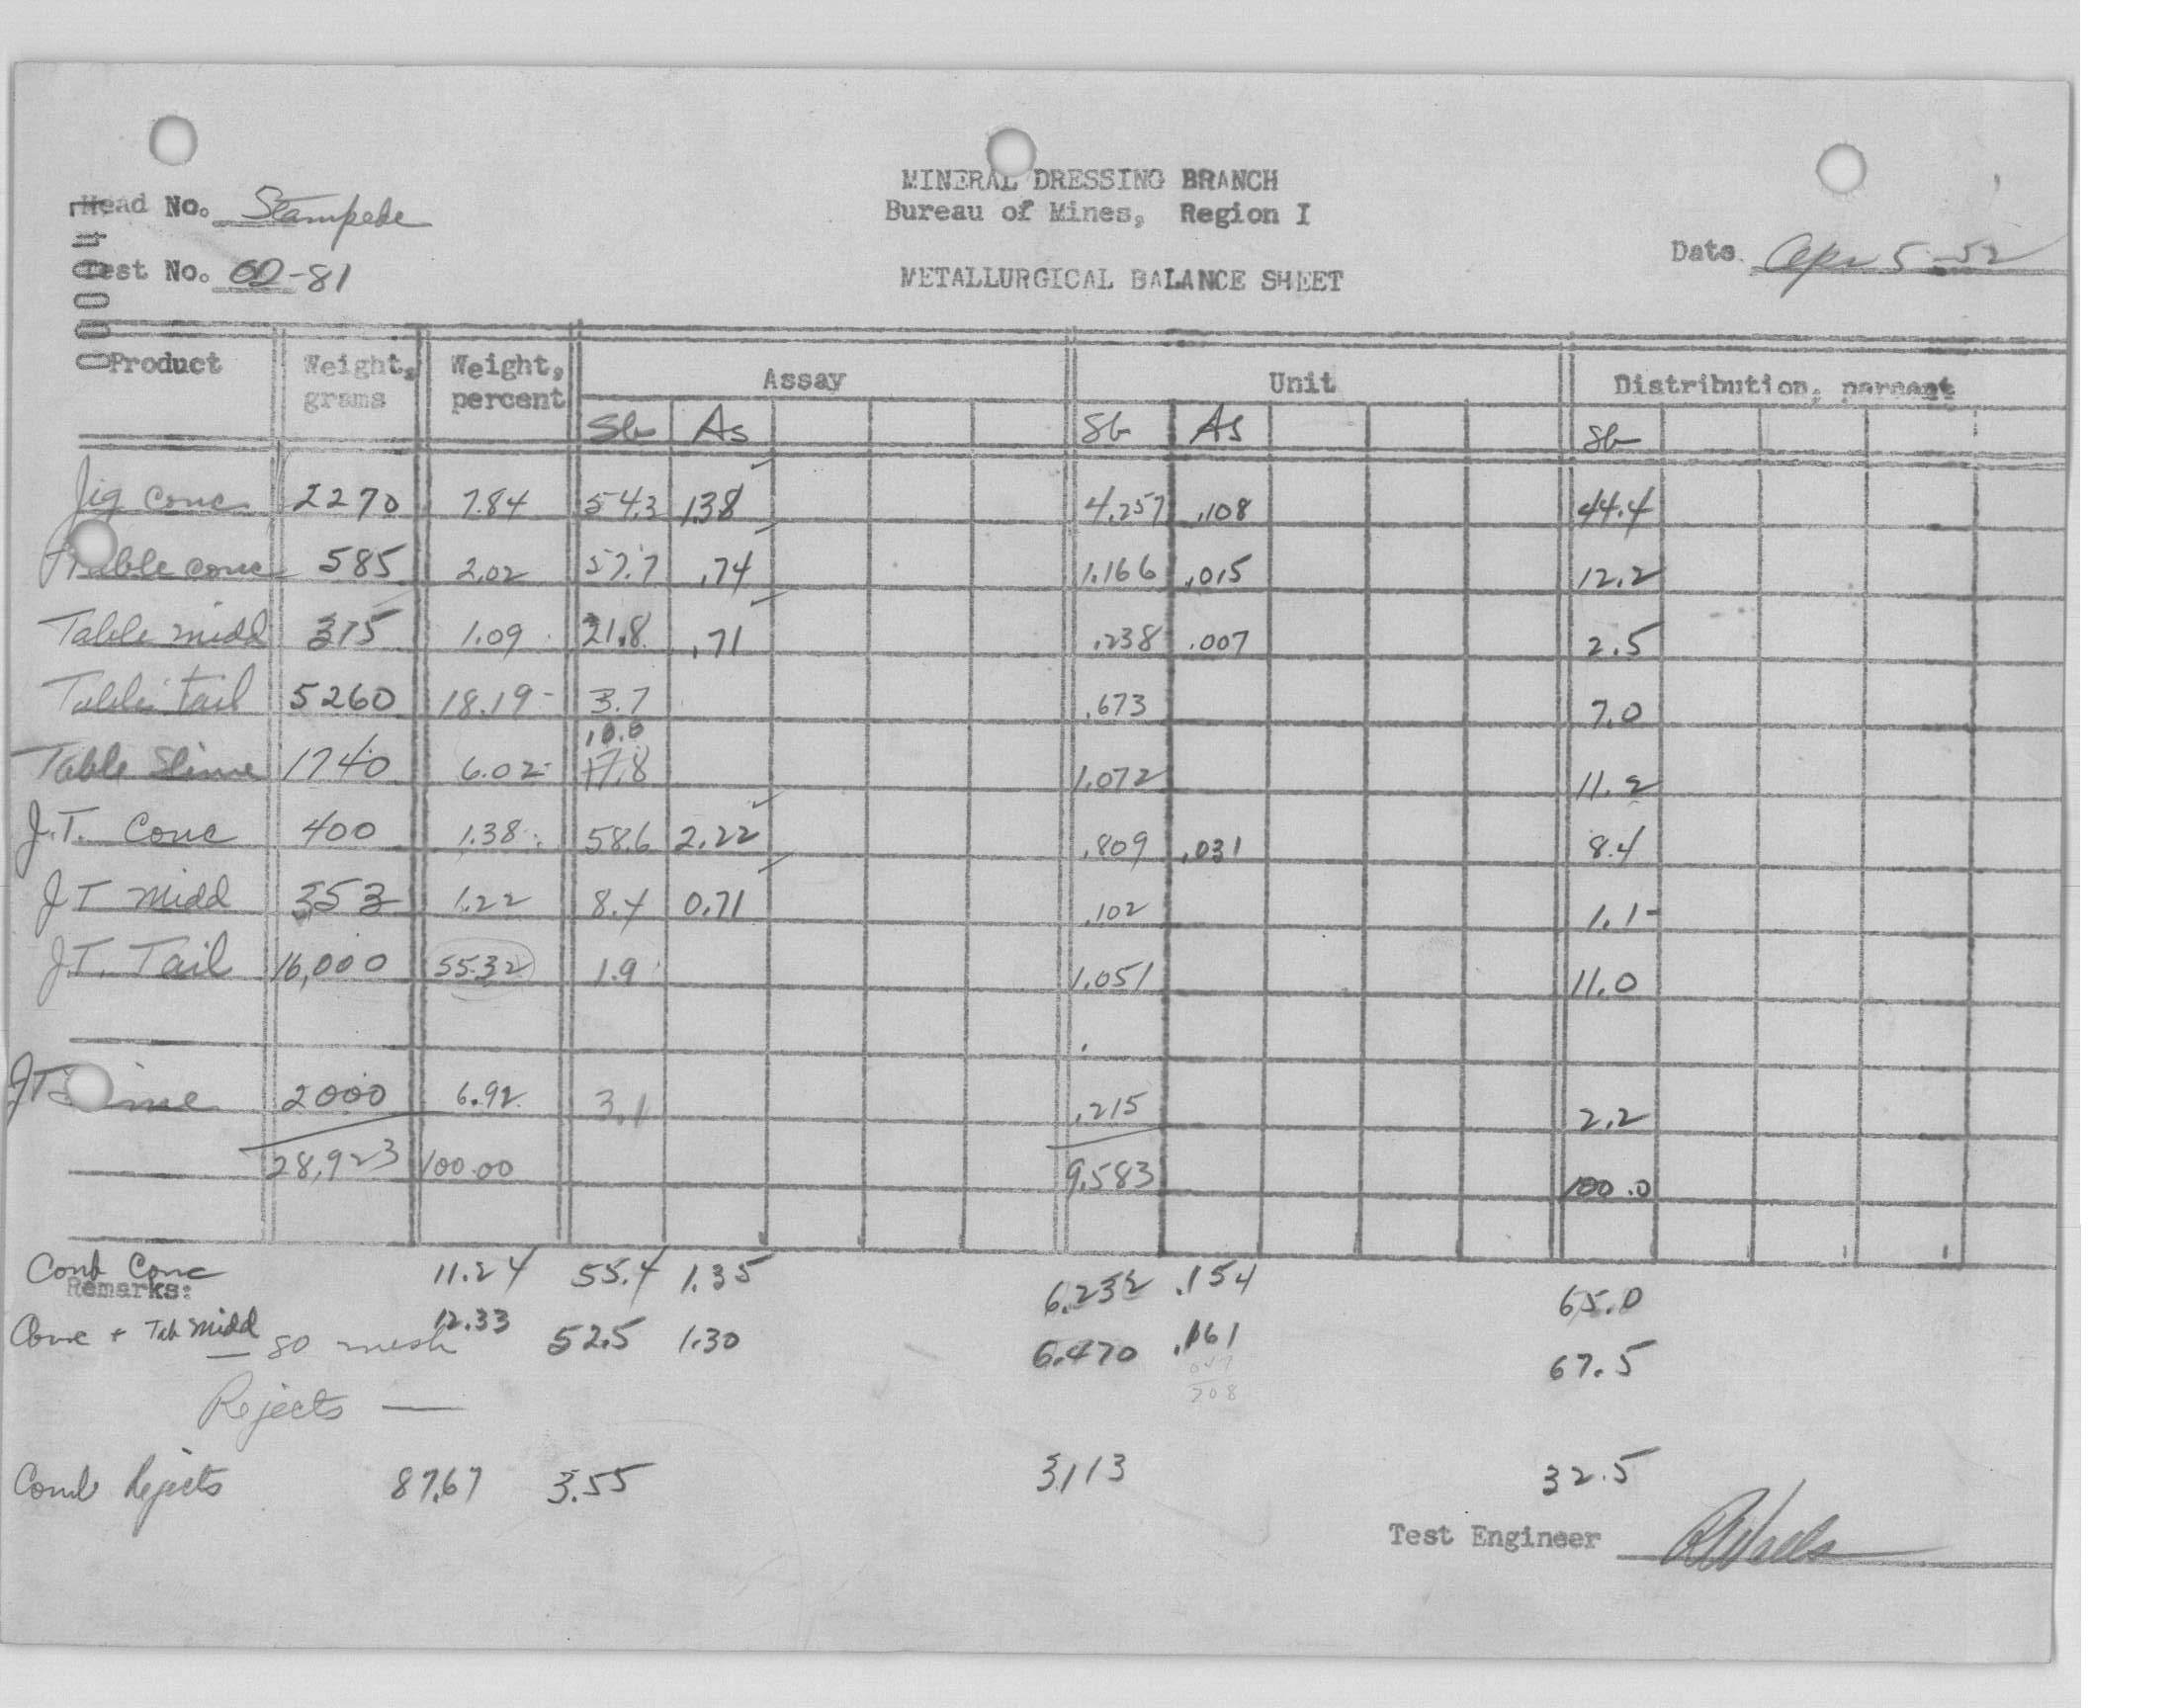 MINERAL DRESSING BRANCH
Head No. Stampede
Bureau of Mines, Region I
Date Apr 5-52
Test No. OD-81
METALLURGICAL BALANCE SHEET
Product Weight, grams Weight, percent Assay Unit Distribution, percent
Sb As Sb As Sb
Jig conc 2270 7.84 54.3 1.38 4.257 .108 44.4
Table conc 585 2.02 57.7 .74 1.166 .015 12.2
Table midd 315 1.09 21.8 .71 .238 .007 2.5
Table tail 5260 18.19 3.7 .673 7.0
Table Slime 1740 6.02 17.8 1.072 11.2
J.T. Conc 400 1.38 58.6 2.22 .809 .031 8.4
JT Midd 353 1.22 8.4 0.71 .102 1.1
J.T. Tail 16,000 55.32 1.9 1.051 11.0
JT Slime 2000 6.92 3.1 .215 2.2
28,923 100.00 9.583 100.0
Comb Conc 11.24 55.4 1.35 6.232 .154 65.0
Remarks:
Conc + Tab Midd 12.33 52.5 1.30 6.470 .161 67.5
- 80 mesh
047
208
Rejects —
Comb Rejects 87.67 3.55 3.113 32.5
Test Engineer